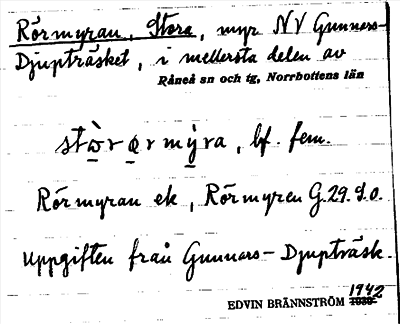 Rörmyran, Stora, myr NV Gunnars-
Djupträsket, i mellersta delen av
Råneå sn och tg, Norrbottens län
stò̠r ø̠r mỳ̠ra, bf. fem.
Rörmyran ek, Rörmyren G.29.S.O.
Uppgiften från Gunnars-Djupträsk.
1942
EDVIN BRÄNNSTRÖM 1939